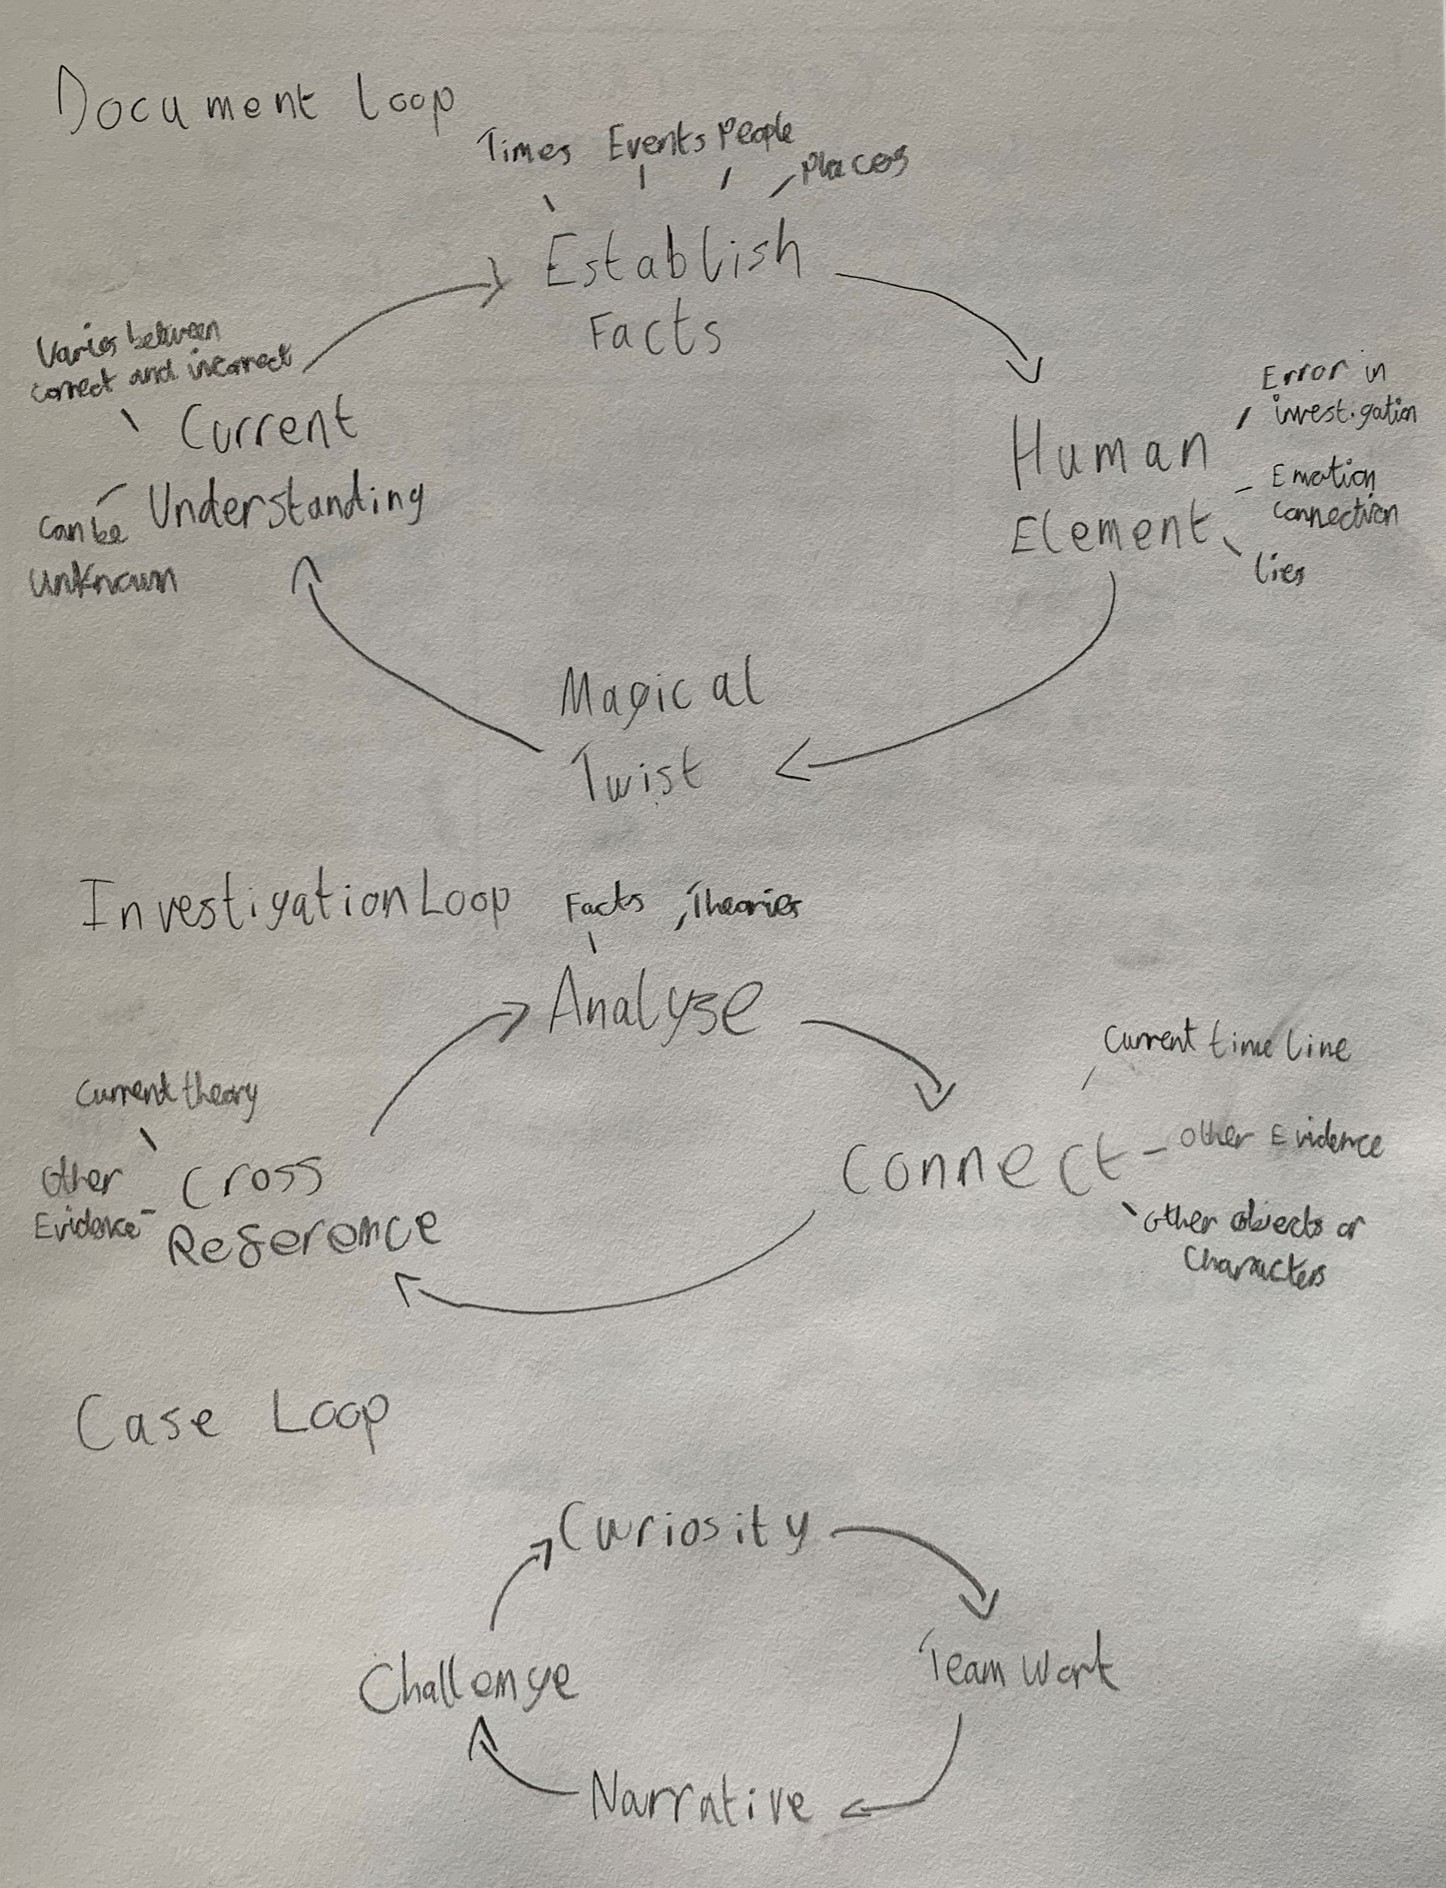 Document Loop
Times Events People Places
Establish
Facts
Human
Element
Error in
investigation
Emotion
connection
lies
Magical
Twist
Current
Understanding
Varies between
correct and incorrect
Can be
unknown
Investigation Loop
Facts Theories
Analyse
Connect
Current time line
other Evidence
other objects or
Characters
Cross
Reference
Current theory
Other
Evidence
Case Loop
Curiosity
Team Work
Narrative
Challenge